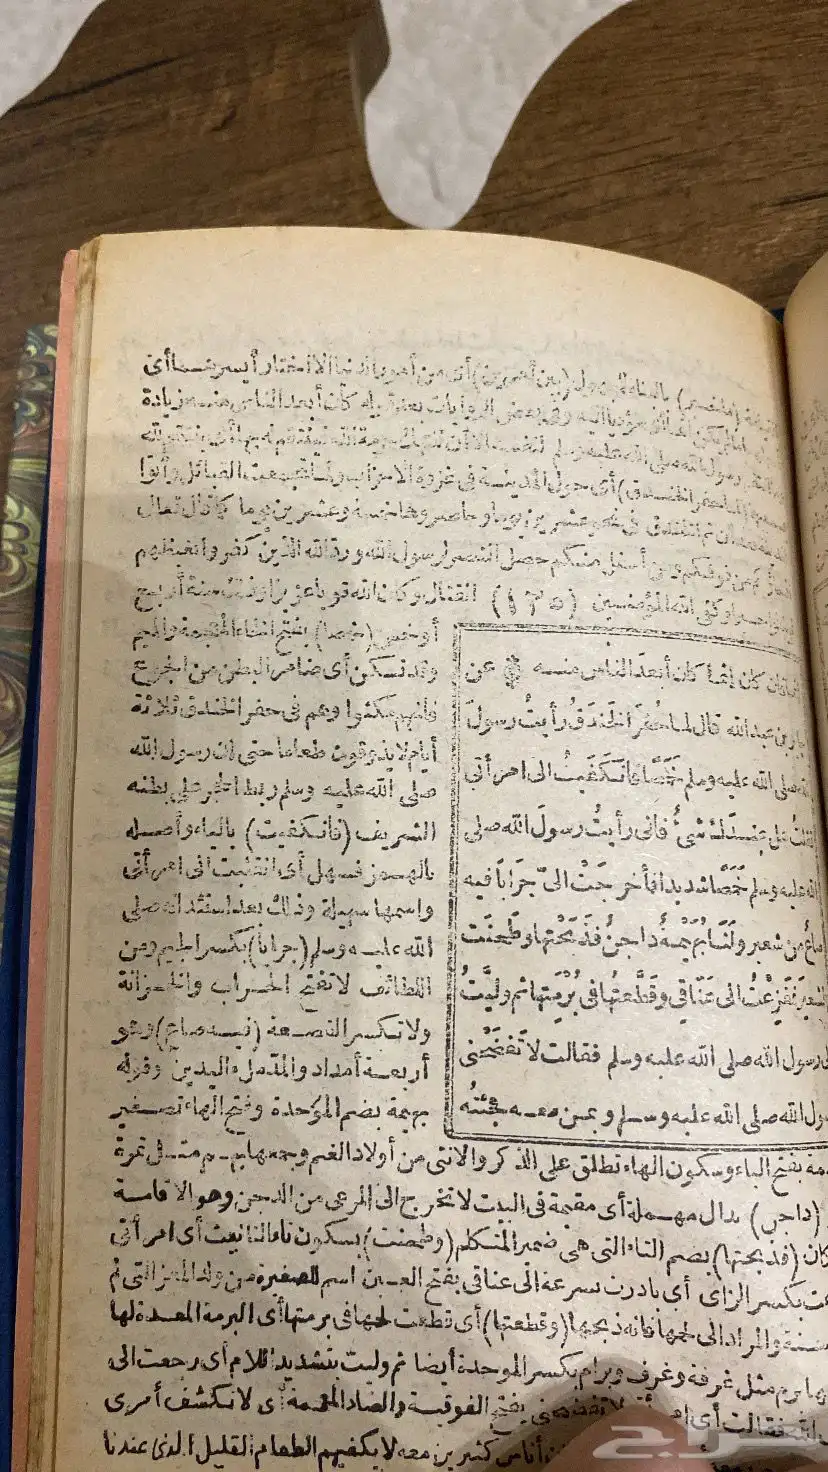 (بين أمرين) أى من أمور الدنيا الا اختار أيسرهما أى
كان أبعد الناس منه زيادة
رسول الله صلى الله عليه وسلم لنفسه الا أن تنتهك حرمة الله فينتقم لله بها أى ينتقم لله
(لما حفر الخندق) أى حول المدينة فى غزوة الاحزاب ولما تجمعت القبائل وأتوا
فى نحو عشرين يوما وحاصروها خمسة وعشرين يوما كما قال تعالى
من فوقكم ومن أسفل منكم حصل النصر لرسول الله ورد الله الذين كفروا بغيظهم
وكفى الله المؤمنين (١٣٥) القتال وكان الله قويا عزيزا وذلك سنة أربع
أو خمس (خمصا) بفتح الخاء المعجمة والميم
وقد تسكن أى ضامر البطن من الجوع
فانهم مكثوا وهم فى حفر الخندق ثلاثة
أيام لا يذوقون طعاما حتى ان رسول الله
صلى الله عليه وسلم ربط الحجر على بطنه
الشريف (فانكفيت) بالياء وأصله
بالهمز فسهل أى انقلبت الى امرأتى
واسمها سهيلة وذلك بعد استئذانه صلى
الله عليه وسلم (جرابا) بكسر الجيم ومن
اللطائف لا تفتح الجراب والخزانة
ولا تكسر القصعة (فيه صاع) وهو
أربعة أمداد والمد ملء اليدين وقوله
بهيمة بضم الموحدة وفتح الهاء تصغير
كان اثما كان أبعد الناس منه عن
بن عبد الله قال لما حفر الخندق رأيت رسول
صلى الله عليه وسلم خمصا فانكفيت الى امرأتى
فقلت هل عندك شئ فانى رأيت رسول الله صلى
الله عليه وسلم خمصا شديدا فأخرجت الى جرابا فيه
صاع من شعير ولنا بهيمة داجن فذبحتها وطحنت
الشعير ففزعت الى عناقى وقطعتها فى برمتها ثم وليت
رسول الله صلى الله عليه وسلم فقالت لا تفضحنى
رسول الله صلى الله عليه وسلم وبمن معه فجئته
بفتح الباء وسكون الهاء تطلق على الذكر والانثى من أولاد الغنم وجمعها بهم مثل تمرة
(داجن) بدال مهملة أى مقيمة فى البيت لا تخرج الى المرعى من الدجن وهو الاقامة
(فذبحتها) بضم التاء التى هى ضمير المتكلم (وطحنت) بسكون تاء التأنيث أى امرأتى
بكسر الزاى أى بادرت بسرعة الى عناقى بفتح العين اسم للصغيرة من ولد المعز التى لم
سنة والمراد الى لحمها فانه ذبحها (وقطعتها) أى قطعت لحمها فى برمتها أى البرمة المعدة لها
برم مثل غرفة وغرف وبرام بكسر الموحدة أيضا ثم وليت بتشديد اللام أى رجعت الى
الله فقالت أى لا تفضحنى بفتح الفوقية والضاد المعجمة أى لا تكشف أمرى
أناس كثيرين معه لا يكفيهم الطعام القليل الذى عندنا
حراج